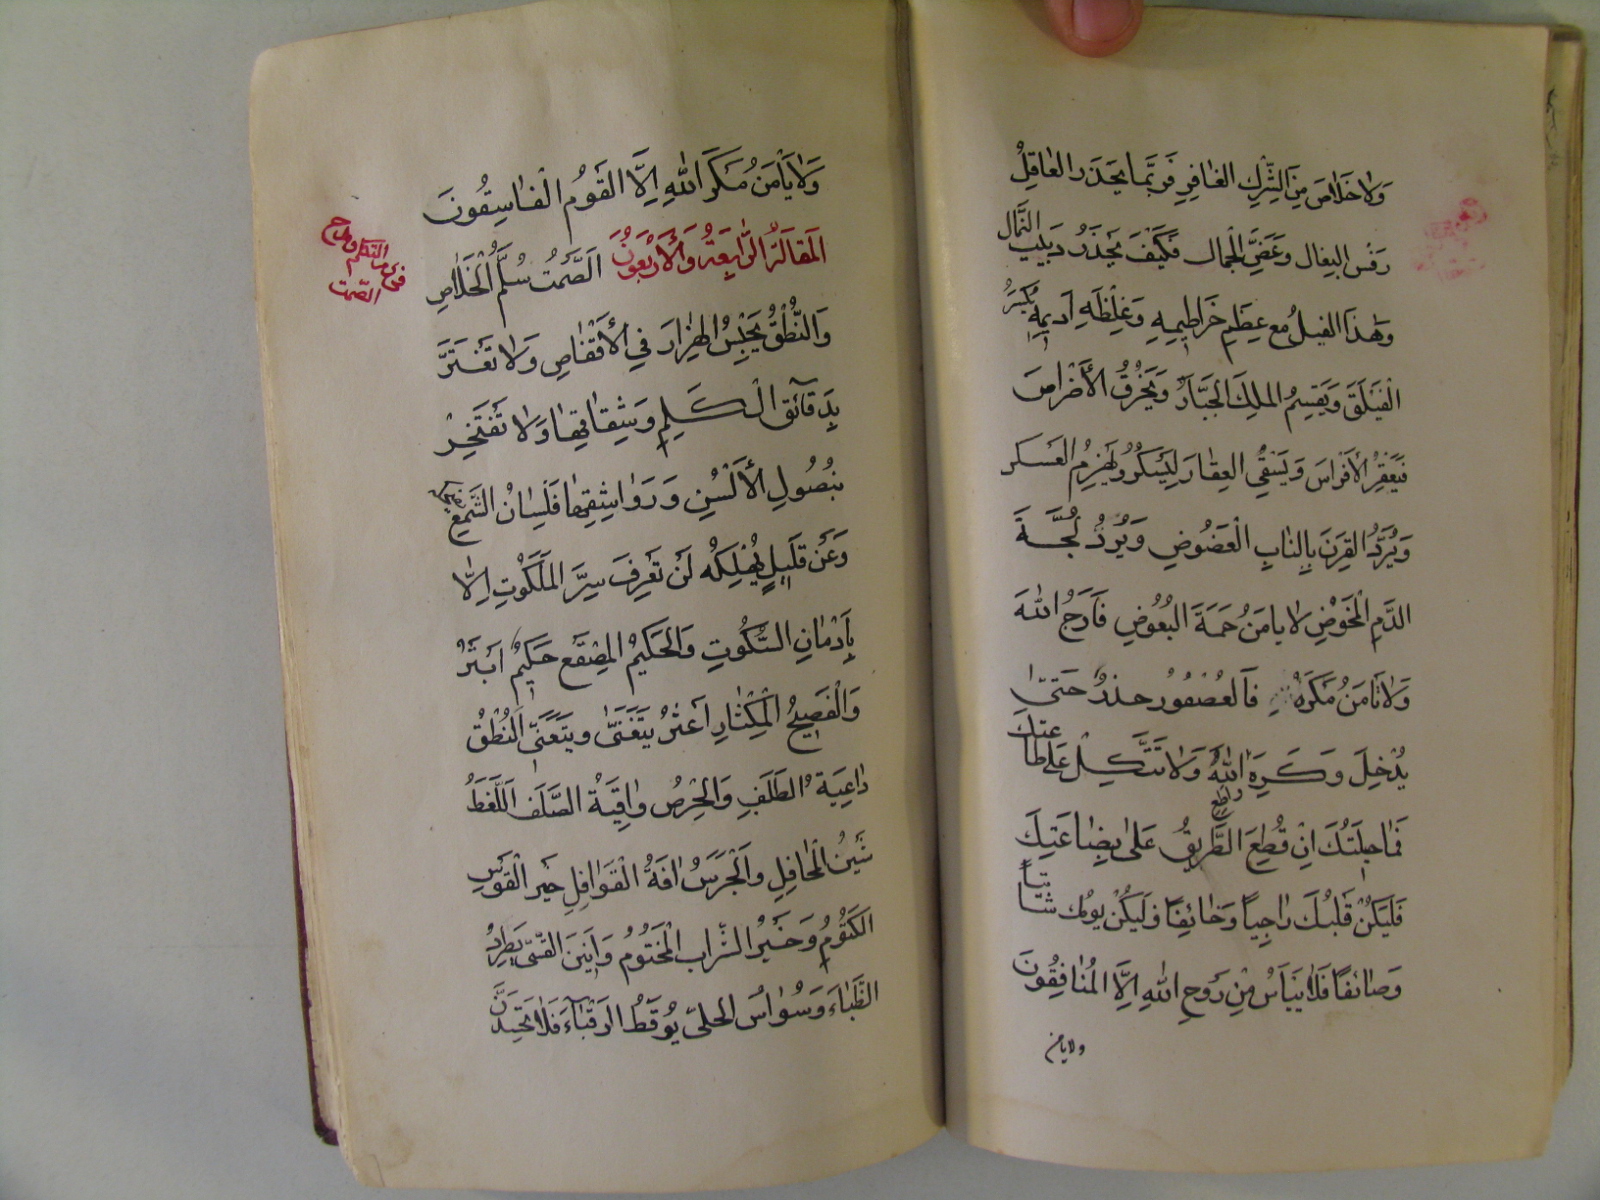 ولا خلاص من الشرك الغافر فربما يحذر العاقل
رفس البغال وعض الجمال فكيف يحذر دبيب النمال
وهذا الفيل مع عظم خراطيمه وغلظه اديمه يكسر
الفيلق ويقسم الملك الجبار ويخرق الأضراس
فيعقر الأفراس ويسقي العقار ليسكر ويهزم العسكر
ويرد القرن بالناب العضوض ويرد لجة
الدم المخوض لا يامن حمة البعوض فارج الله
ولا تامن مكره فالعصفور حذر حتى
يدخل وكره الله ولا تتكل على طاعتك
فما حيلتك ان قطع الطريق على بضاعتك
فليكن قلبك راجيا وخائفا وليكن يومك شاتيا
وصائفا فلا ييأس من روح الله إلا المنافقون
ولا يامن
ولا يأمن مكر الله إلا القوم الفاسقون
المقالة الرابعة والأربعون الصمت سلم الخلاص
في ذم التكلم ومدح
الصمت
والنطق يحبس الهزار في الأقفاص ولا تغتر
بدقائق الكلم وشقاقها ولا تفتخر
بنصول الألسن ورواشقها فلسان الشمع يضحكه
وعن قليل يهلكه لن تعرف سر الملكوت إلا
بادمان السكوت والحكيم المصقع حكيم ابتر
والفصيح المكثار اعثر يتغنى ويتعنى النطق
داعية الطلف والحرص واقية الصلف اللغط
شين المحافل والجرس افة القوافل خير القوس
الكتوم وخير الشراب المختوم وانين القسي يطرد
الظباء وسواس الحلي يوقظ الرقباء فلا تحمدن